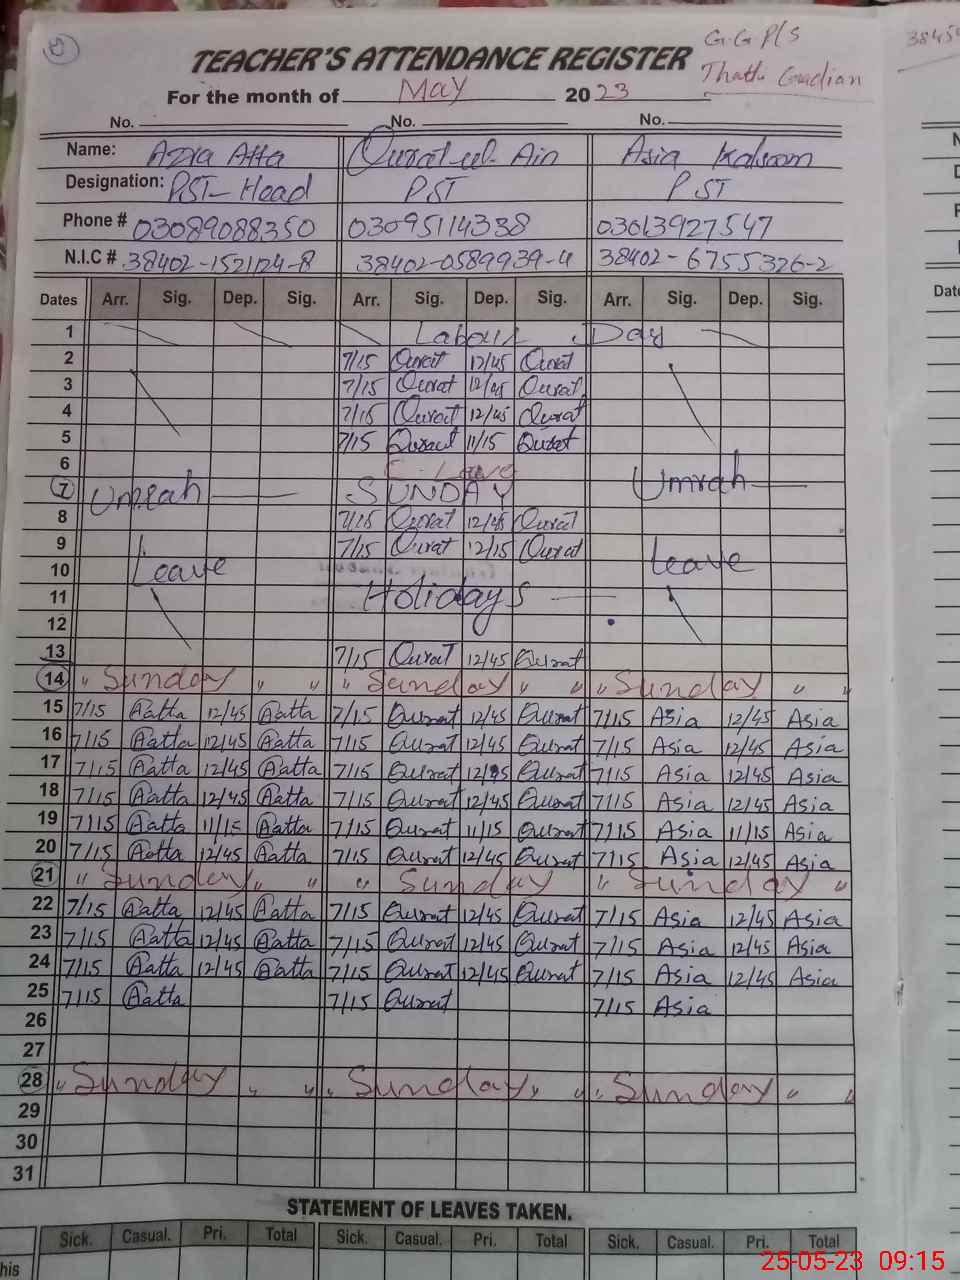 TEACHER'S ATTENDANCE REGISTER
G.G P/S
3845
For the month of May 2023
No. No. No.
Name: Azra Atta Qurat-ul-Ain Asia Kalsoom
Designation: PST-Head PST PST
Phone # 03089088350 03095114338 03013927547
N.I.C # 38402-1521124-8 38402-0589939-4 38402-6755326-2
Dates Arr. Sig. Dep. Sig. Arr. Sig. Dep. Sig. Arr. Sig. Dep. Sig.
1 Labour Day
2 7/15 Qurat 12/45 Qurat
3 7/15 Qurat 12/45 Qurat
4 7/15 Qurat 12/45 Qurat
5 7/15 Qurat 11/15 Qurat
6 C. Leave
7 Umrah SUNDAY Umrah
8 7/15 Qurat 12/45 Qurat
9 7/15 Qurat 12/15 Qurat
10 Leave Leave
11 Holidays
12
13 7/15 Qurat 12/45 Qurat
14 " Sunday " " " Sunday " " " Sunday " "
15 7/15 @atta 12/45 @atta 7/15 Qurat 12/45 Qurat 7/15 Asia 12/45 Asia
16 7/15 @atta 12/45 @atta 7/15 Qurat 12/45 Qurat 7/15 Asia 12/45 Asia
17 7/15 @atta 12/45 @atta 7/15 Qurat 12/45 Qurat 7/15 Asia 12/45 Asia
18 7/15 @atta 12/45 @atta 7/15 Qurat 12/45 Qurat 7/15 Asia 12/45 Asia
19 7/15 @atta 11/15 @atta 7/15 Qurat 11/15 Qurat 7/15 Asia 11/15 Asia
20 7/15 @atta 12/45 @atta 7/15 Qurat 12/45 Qurat 7/15 Asia 12/45 Asia
21 " Sunday " " " Sunday " Sunday "
22 7/15 @atta 12/45 @atta 7/15 Qurat 12/45 Qurat 7/15 Asia 12/45 Asia
23 7/15 @atta 12/45 @atta 7/15 Qurat 12/45 Qurat 7/15 Asia 12/45 Asia
24 7/15 @atta 12/45 @atta 7/15 Qurat 12/45 Qurat 7/15 Asia 12/45 Asia
25 7/15 @atta 7/15 Qurat 7/15 Asia
26
27
28 " Sunday " " " Sunday " " " Sunday " "
29
30
31
STATEMENT OF LEAVES TAKEN.
Sick. Casual. Pri. Total Sick. Casual. Pri. Total Sick. Casual. Pri. Total
25-05-23 09:15